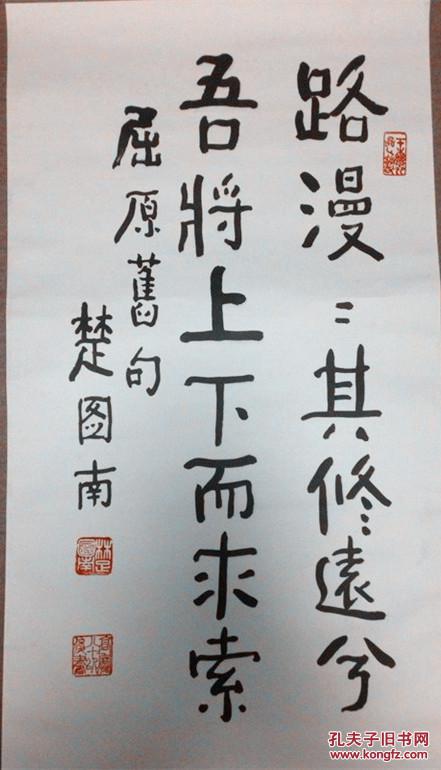 路漫〻其修遠兮
吾將上下而求索
屈原舊句
楚图南
孔夫子旧书网
www.kongfz.com